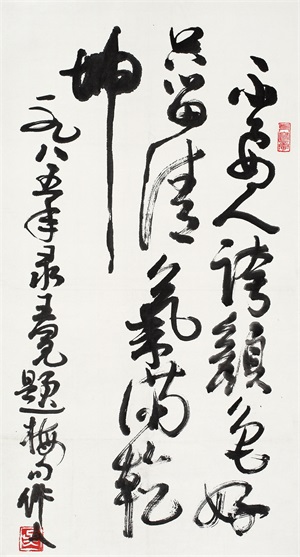 不要人誇顔色好
只留清氣滿乾
坤
一九八五年录王冕題梅句作人